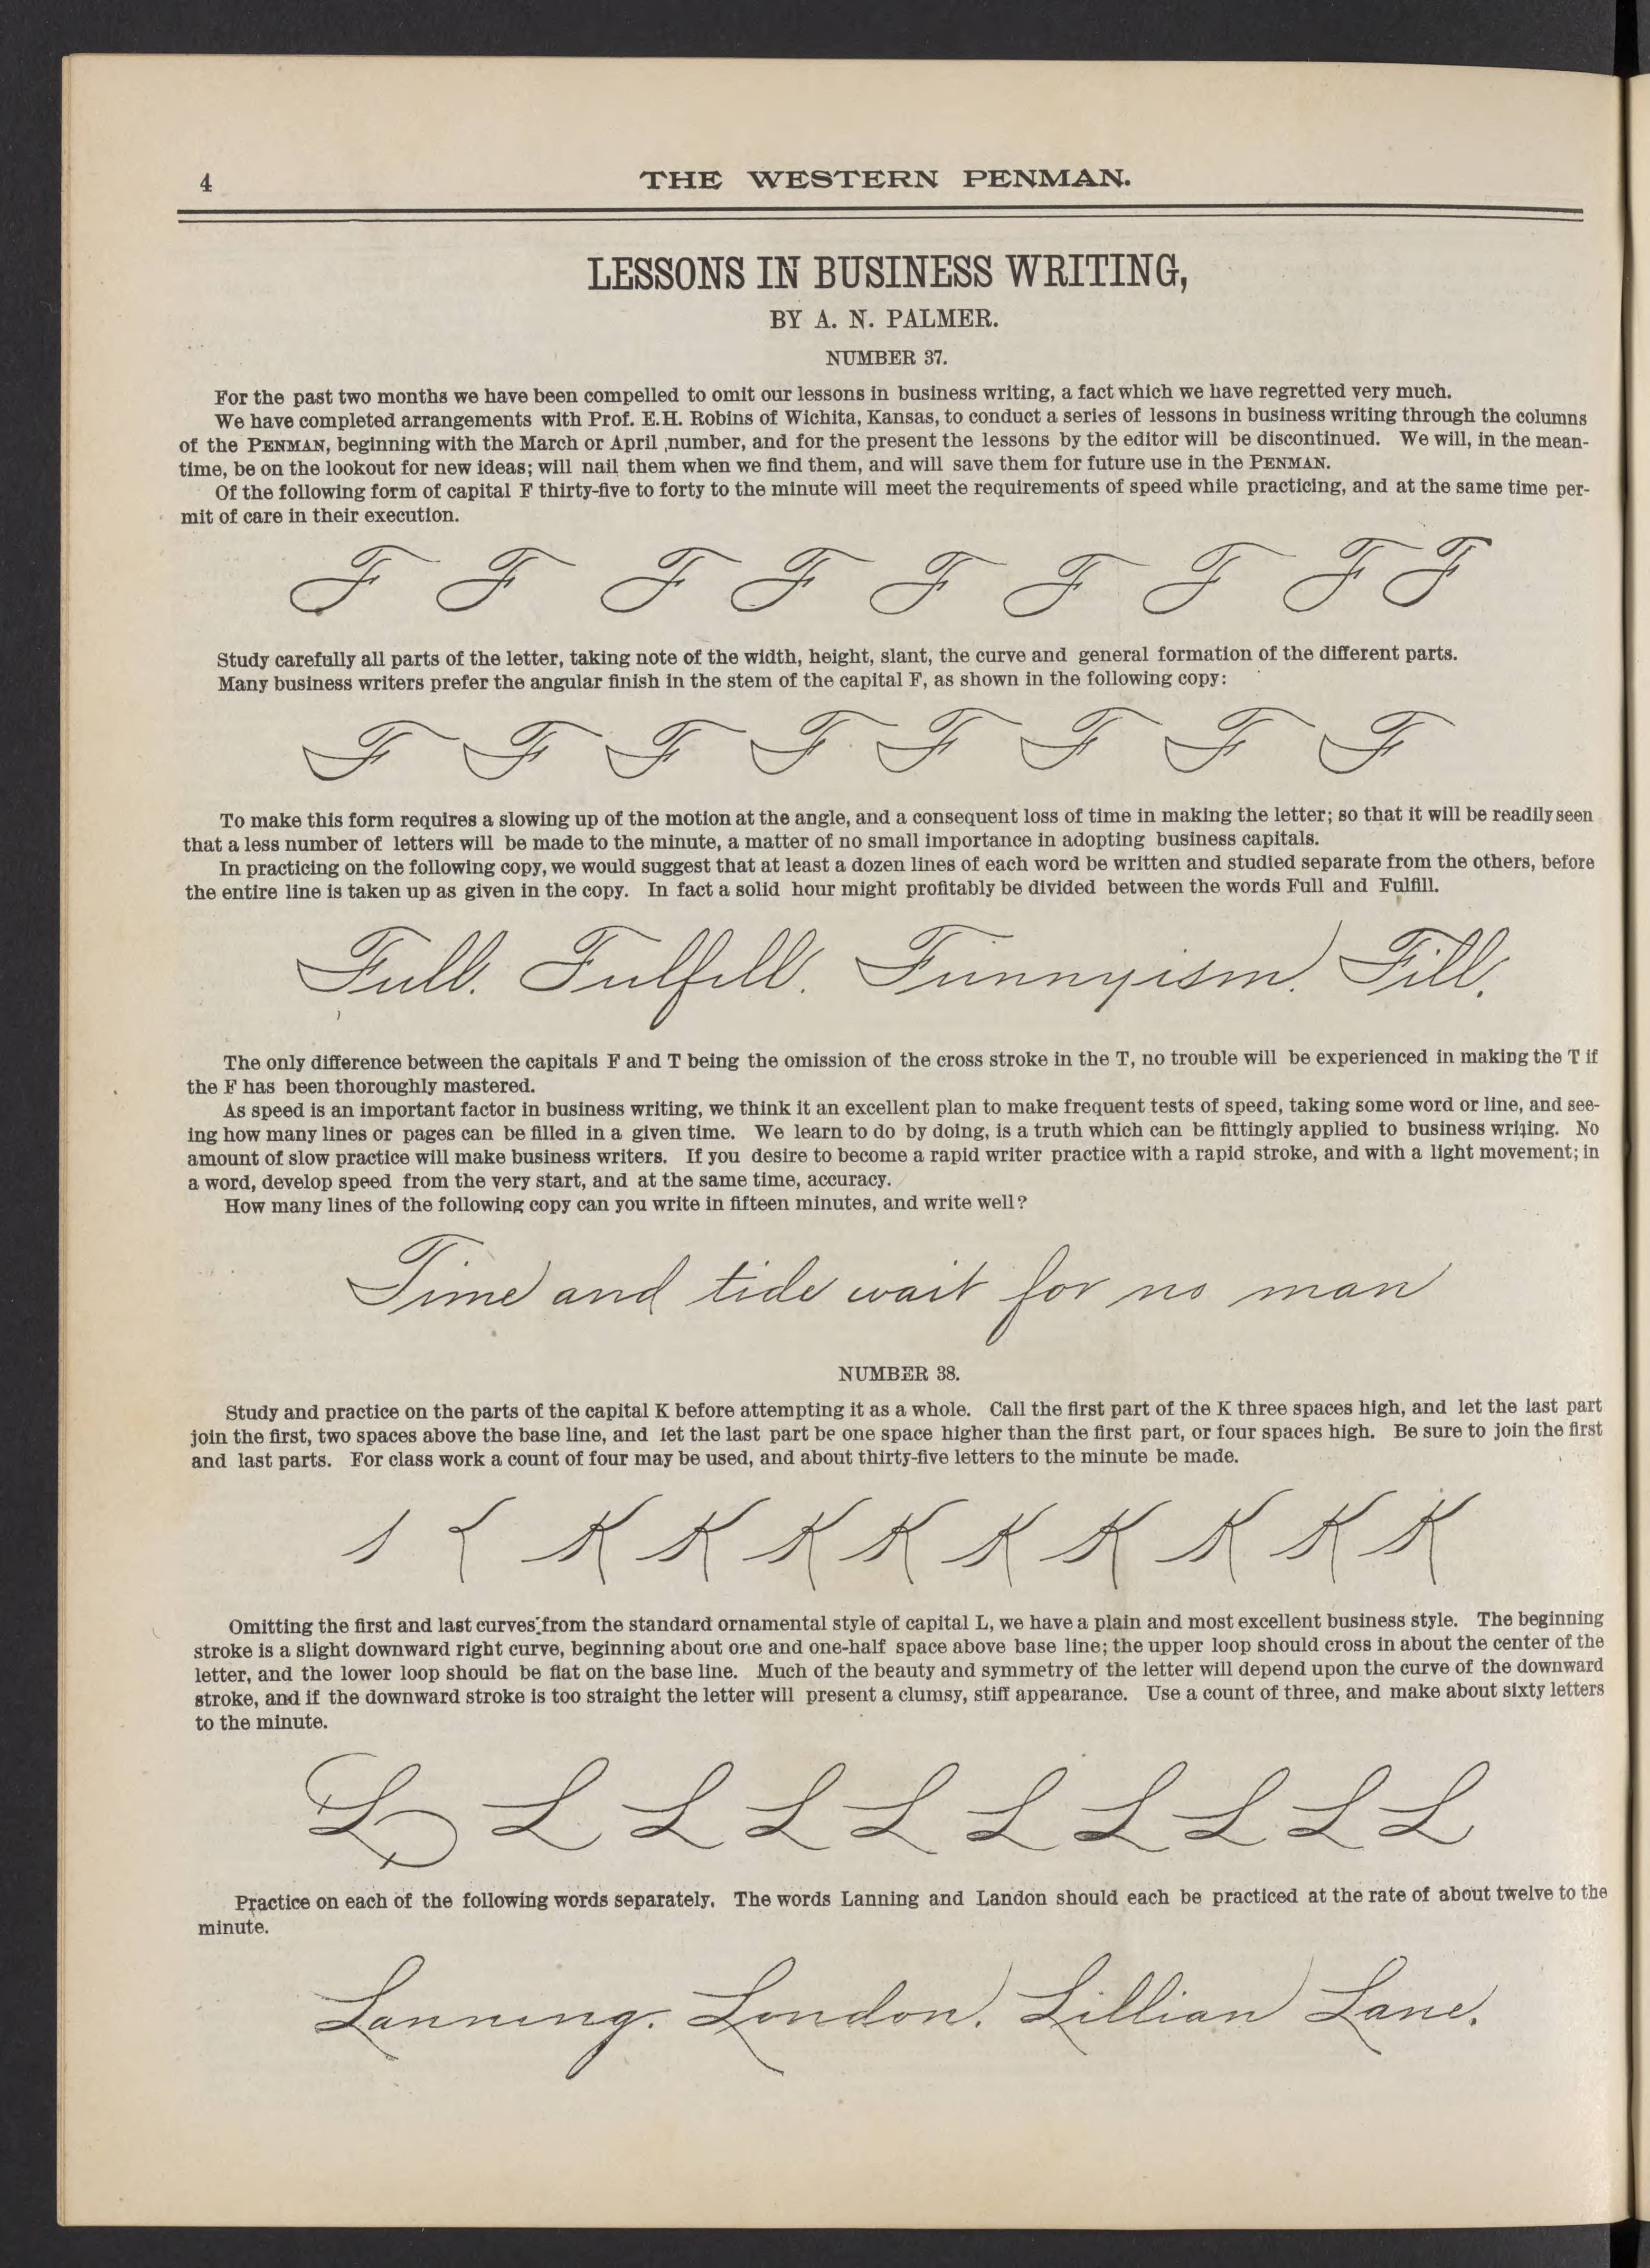 4
THE WESTERN PENMAN.
LESSONS IN BUSINESS WRITING,
BY A. N. PALMER.
NUMBER 37.
For the past two months we have been compelled to omit our lessons in business writing, a fact which we have regretted very much.
We have completed arrangements with Prof. E.H. Robins of Wichita, Kansas, to conduct a series of lessons in business writing through the columns
of the PENMAN, beginning with the March or April ,number, and for the present the lessons by the editor will be discontinued. We will, in the mean-
time, be on the lookout for new ideas; will nail them when we find them, and will save them for future use in the PENMAN.
Of the following form of capital F thirty-five to forty to the minute will meet the requirements of speed while practicing, and at the same time per-
mit of care in their execution.
F F F F F F F F F
Study carefully all parts of the letter, taking note of the width, height, slant, the curve and general formation of the different parts.
Many business writers prefer the angular finish in the stem of the capital F, as shown in the following copy:
F F F F F F F F
To make this form requires a slowing up of the motion at the angle, and a consequent loss of time in making the letter; so that it will be readily seen
that a less number of letters will be made to the minute, a matter of no small importance in adopting business capitals.
In practicing on the following copy, we would suggest that at least a dozen lines of each word be written and studied separate from the others, before
the entire line is taken up as given in the copy. In fact a solid hour might profitably be divided between the words Full and Fulfill.
Full. Fulfill. Funnyism. Fill.
The only difference between the capitals F and T being the omission of the cross stroke in the T, no trouble will be experienced in making the T if
the F has been thoroughly mastered.
As speed is an important factor in business writing, we think it an excellent plan to make frequent tests of speed, taking some word or line, and see-
ing how many lines or pages can be filled in a given time. We learn to do by doing, is a truth which can be fittingly applied to business writing. No
amount of slow practice will make business writers. If you desire to become a rapid writer practice with a rapid stroke, and with a light movement; in
a word, develop speed from the very start, and at the same time, accuracy.
How many lines of the following copy can you write in fifteen minutes, and write well?
Time and tide wait for no man
NUMBER 38.
Study and practice on the parts of the capital K before attempting it as a whole. Call the first part of the K three spaces high, and let the last part
join the first, two spaces above the base line, and let the last part be one space higher than the first part, or four spaces high. Be sure to join the first
and last parts. For class work a count of four may be used, and about thirty-five letters to the minute be made.
K K K K K K K K K
Omitting the first and last curves from the standard ornamental style of capital L, we have a plain and most excellent business style. The beginning
stroke is a slight downward right curve, beginning about one and one-half space above base line; the upper loop should cross in about the center of the
letter, and the lower loop should be flat on the base line. Much of the beauty and symmetry of the letter will depend upon the curve of the downward
stroke, and if the downward stroke is too straight the letter will present a clumsy, stiff appearance. Use a count of three, and make about sixty letters
to the minute.
L L L L L L L L L L
Practice on each of the following words separately. The words Lanning and Landon should each be practiced at the rate of about twelve to the
minute.
Lanning. London. Lillian Lane.